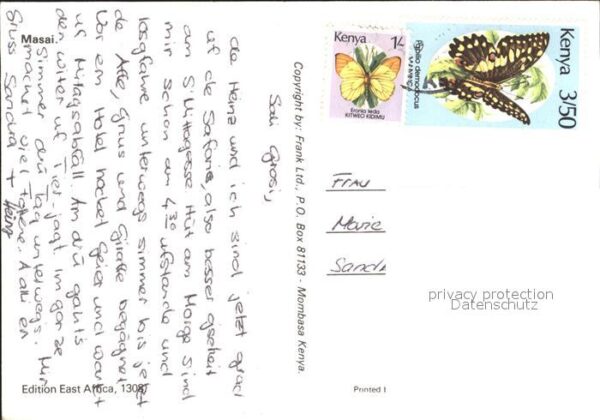 Masai.
Sali Grosi,
de Heinz und ich sind jetzt grad
uf de Safarie, also besser gseit
am z'Mittagesse. Hüt am Morge sind
mir schon am 4.30 ufstande und
losgfahre. unterwegs simmer bis jetzt
de Affe, Gnus und Giraffe begägnet
Vor em Hotel hocket Geier und wartet
uf Mittagsabfall. Am drü gahts
den witer uf Tier-jagt. Im ganze
simmer drü Tag unterwegs. Mir
mached viel Fottene. A alli en
Gruss Sandra + Heinz
Edition East Africa, 1308
Copyright by: Frank Ltd., P.O. Box 81133 - Mombasa Kenya.
Kenya 1/-
Eronia leda
KITWEO KIDIMU
Kenya 3/50
Papilio demodocus
Frau
Marie
Sandr
privacy protection
Datenschutz
Printed I